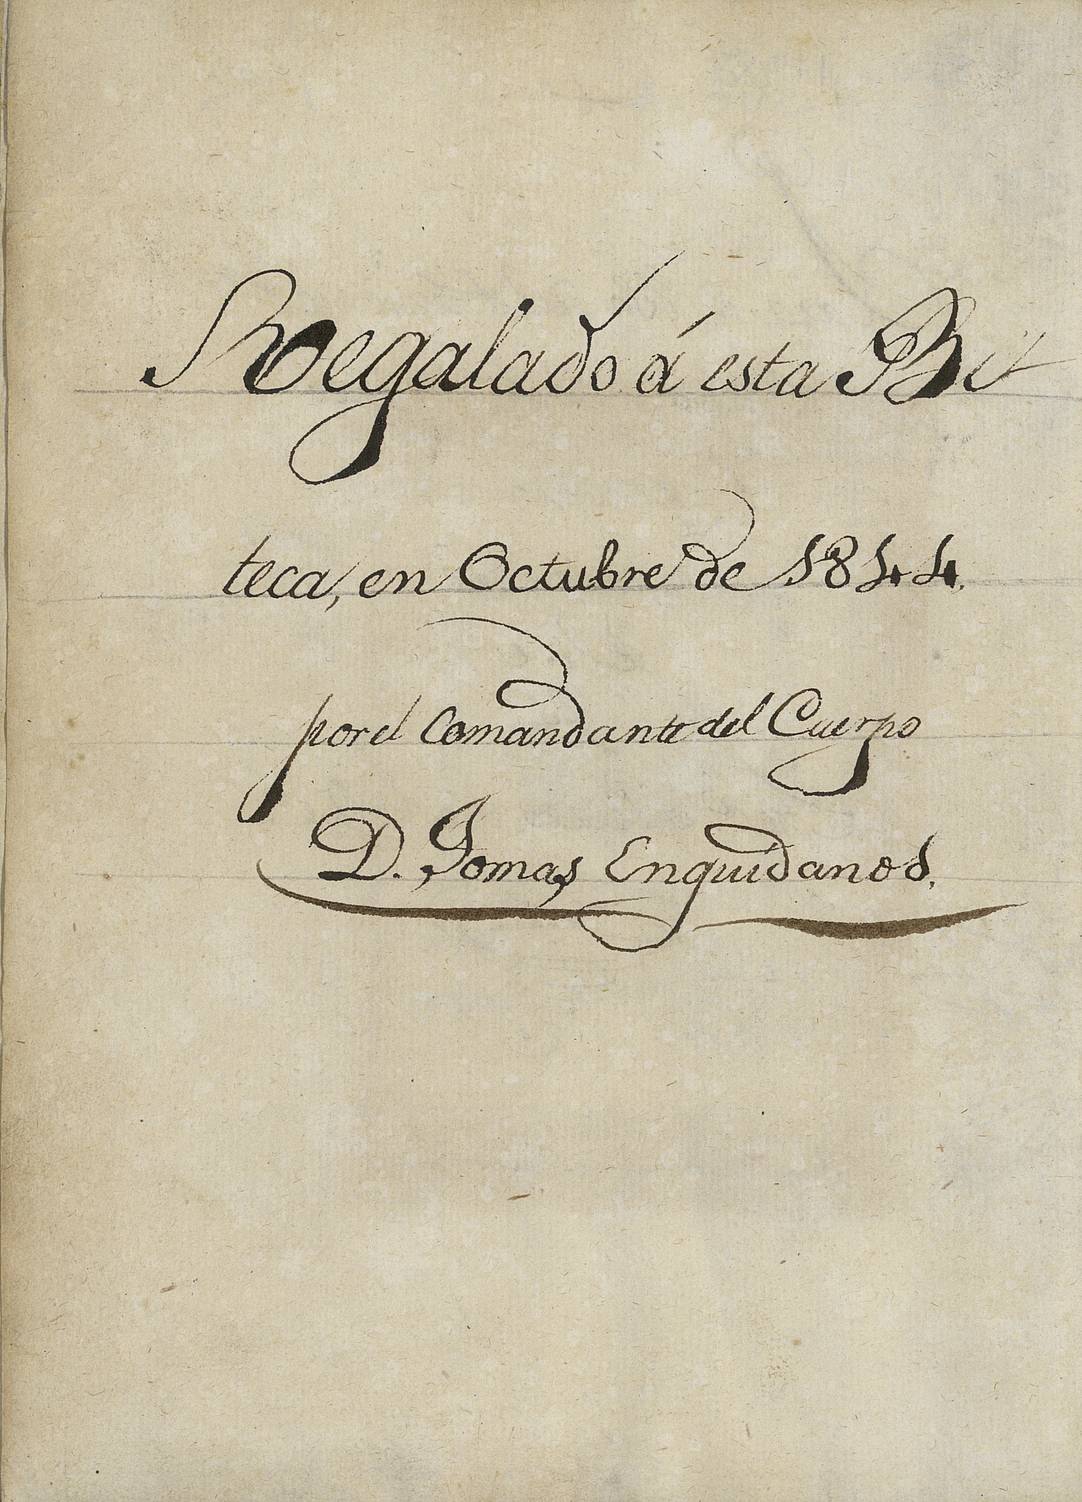 Regalado á esta Bil
teca, en Octubre de 1844.
por el Comandante del Cuerpo
D. Tomas Enguidanos.